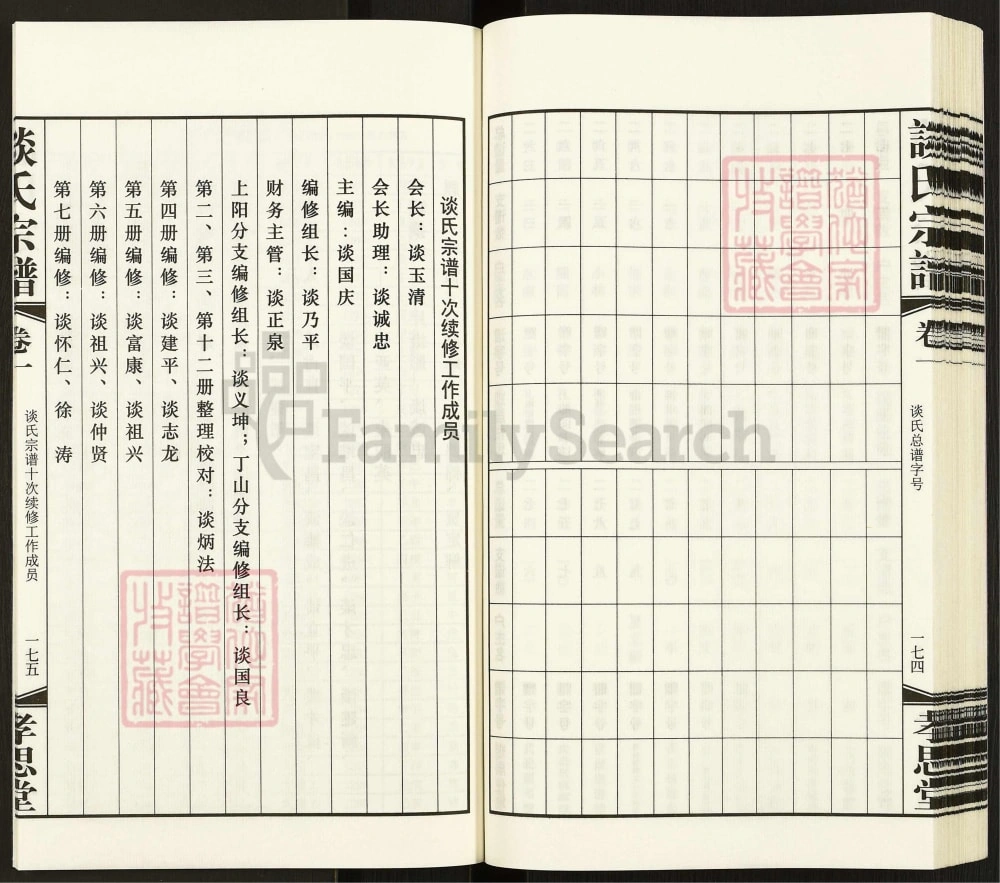 談氏宗譜
卷一
谈氏总谱字号
一七四
孝思堂
谈氏宗谱十次续修工作成员
会长：谈玉清
会长助理：谈诚忠
主编：谈国庆
编修组长：谈乃平
财务主管：谈正泉
上阳分支编修组长：谈义坤；丁山分支编修组长：谈国良
第二、第三、第十二册整理校对：谈炳法
第四册编修：谈建平、谈志龙
第五册编修：谈富康、谈祖兴
第六册编修：谈祖兴、谈仲贤
第七册编修：谈怀仁、徐　涛
谈氏宗谱
卷一
谈氏宗谱十次续修工作成员
一七五
孝思堂
FamilySearch